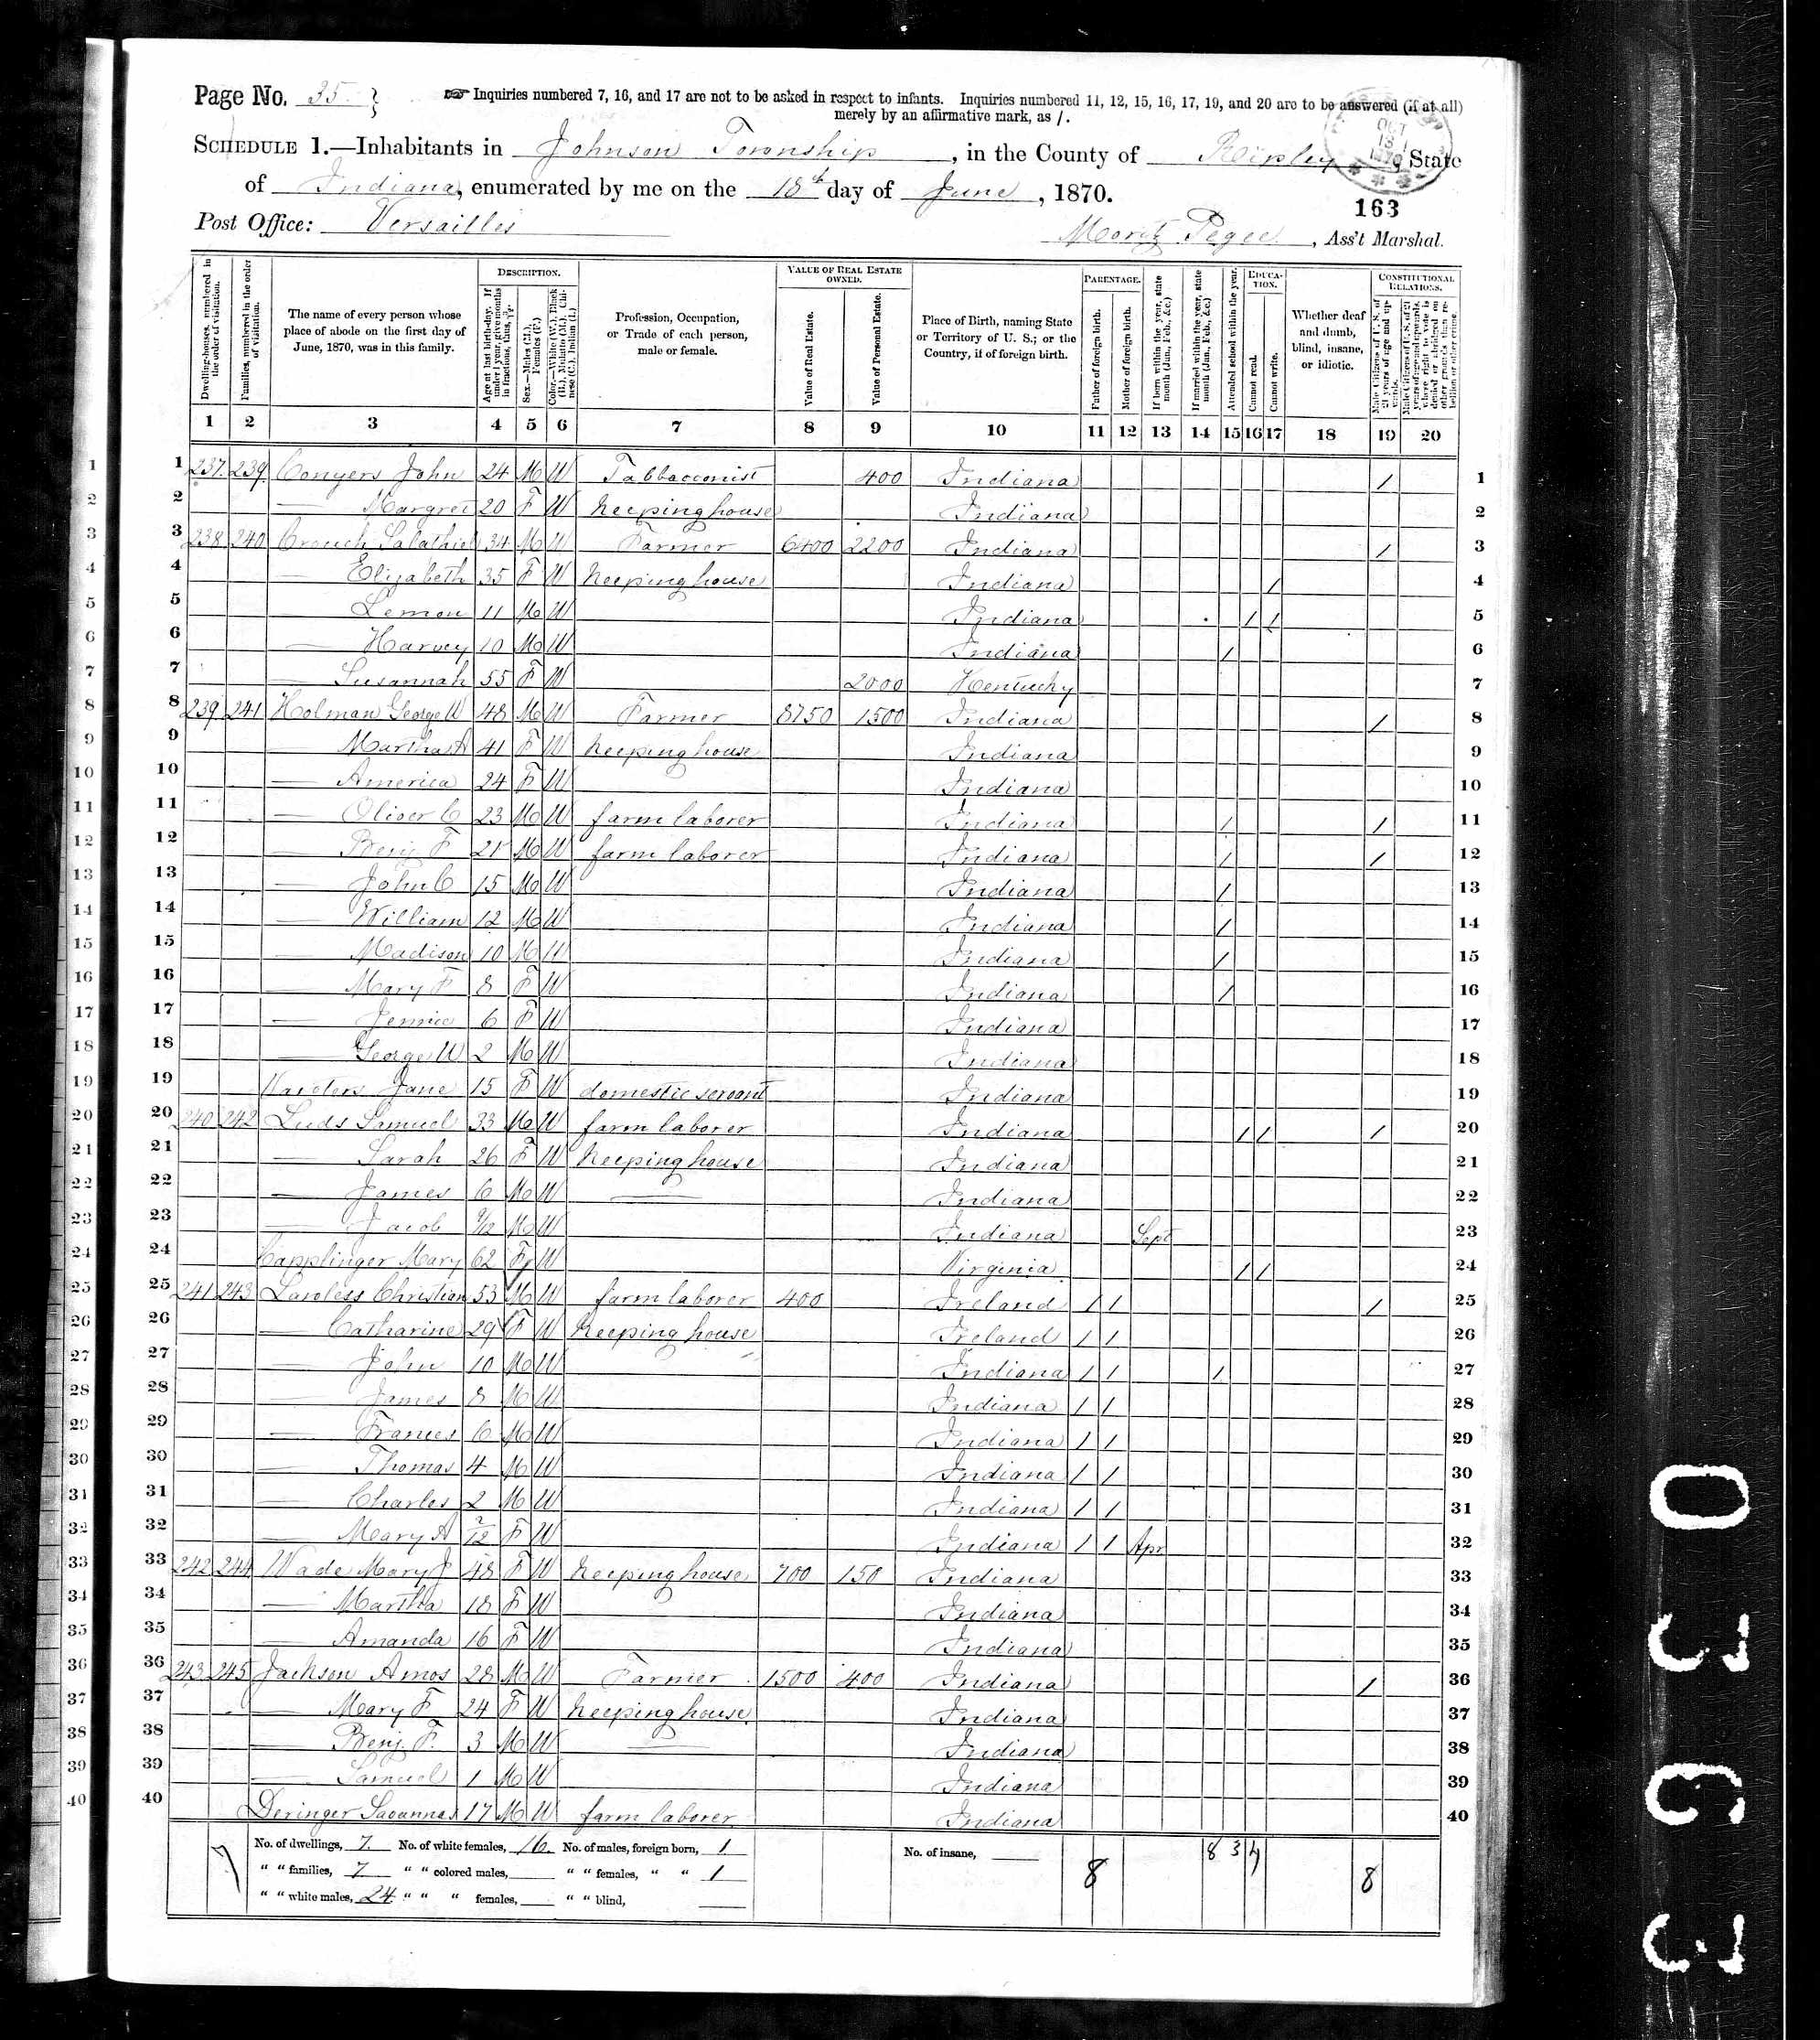 Page No. 35 }
Inquiries numbered 7, 16, and 17 are not to be asked in respect to infants. Inquiries numbered 11, 12, 15, 16, 17, 19, and 20 are to be answered (if at all)
merely by an affirmative mark, as /.
SCHEDULE 1.—Inhabitants in Johnson Township, in the County of Ripley, State
of Indiana, enumerated by me on the 18th day of June, 1870.
OCT 1870
163
Post Office: Versailles
Ass't Marshal.
Dwelling-houses, numbered in the order of visitation.
Families, numbered in the order of visitation.
The name of every person whose place of abode on the first day of June, 1870, was in this family.
DESCRIPTION.
Age at last birth-day. If under 1 year, give months in fractions, thus, 3/12.
Sex.—Males (M.), Females (F.)
Color.—White (W.), Black (B.), Mulatto (M.), Chinese (C.), Indian (I.)
Profession, Occupation, or Trade of each person, male or female.
VALUE OF REAL ESTATE OWNED.
Value of Real Estate.
Value of Personal Estate.
Place of Birth, naming State or Territory of U. S.; or the Country, if of foreign birth.
PARENTAGE.
Father of foreign birth.
Mother of foreign birth.
If born within the year, state month (Jan., Feb., &c.)
If married within the year, state month (Jan., Feb., &c.)
Attended school within the year.
EDUCATION.
Cannot read.
Cannot write.
Whether deaf and dumb, blind, insane, or idiotic.
CONSTITUTIONAL RELATIONS.
Male Citizens of U. S. of 21 years of age and upwards.
Male Citizens of U. S. of 21 years of age and upwards, where right to vote is denied or abridged on other grounds than rebellion or other crime.
1 2 3 4 5 6 7 8 9 10 11 12 13 14 15 16 17 18 19 20
1 237 239 Conyers John 24 M W Tabbacconist 400 Indiana / 1
2 — Margret 20 F W Keeping house Indiana 2
3 238 240 Crouch Salathiel 34 M W Farmer 6400 2200 Indiana / 3
4 — Elizabeth 35 F W Keeping house Indiana / 4
5 — Lemon 11 M W Indiana / / 5
6 — Harvey 10 M W Indiana / 6
7 Susannah 55 F W 2000 Kentucky 7
8 239 241 Holman George W 48 M W Farmer 8750 1500 Indiana / 8
9 — Martha A 41 F W Keeping house Indiana 9
10 — America 24 F W Indiana 10
11 — Oliver C 23 M W farm laborer Indiana / / 11
12 — Benj. F 21 M W farm laborer Indiana / / 12
13 — John C 15 M W Indiana / 13
14 — William 12 M W Indiana / 14
15 — Madison 10 M W Indiana / 15
16 — Mary F 8 F W Indiana / 16
17 — Jennie 6 F W Indiana 17
18 — George W 2 M W Indiana 18
19 Jane 15 F W domestic servant Indiana 19
20 240 242 Luds Samuel 33 M W farm laborer Indiana / / / 20
21 — Sarah 26 F W Keeping house Indiana 21
22 — James 6 M W — Indiana 22
23 — Jacob 9/12 M W Indiana Sept 23
24 Capplinger Mary 62 F W Virginia / / 24
25 241 243 Lawless Christian 53 M W farm laborer 400 Ireland / / / 25
26 — Catharine 29 F W Keeping house Ireland / / 26
27 — John 10 M W Indiana / / / 27
28 — James 8 M W Indiana / / 28
29 — Frances 6 M W Indiana / / 29
30 — Thomas 4 M W Indiana / / 30
31 — Charles 2 M W Indiana / / 31
32 — Mary A 2/12 F W Indiana / / Apr 32
33 242 244 Wade Mary J 48 F W Keeping house 700 150 Indiana 33
34 — Martha 18 F W Indiana 34
35 — Amanda 16 F W Indiana 35
36 243 245 Jackson Amos 28 M W Farmer 1500 400 Indiana / 36
37 — Mary F 24 F W Keeping house Indiana 37
38 — Benj. F. 3 M W — Indiana 38
39 — Samuel 1 M W Indiana 39
40 Deringer 17 M W farm laborer Indiana 40
7 No. of dwellings, 7 No. of white females, 16 No. of males, foreign born, 1 No. of insane, 8 8 3 4 8
" " families, 7 " " colored males, " " females, " " 1
" " white males, 24 " " " females, " " blind,
0363